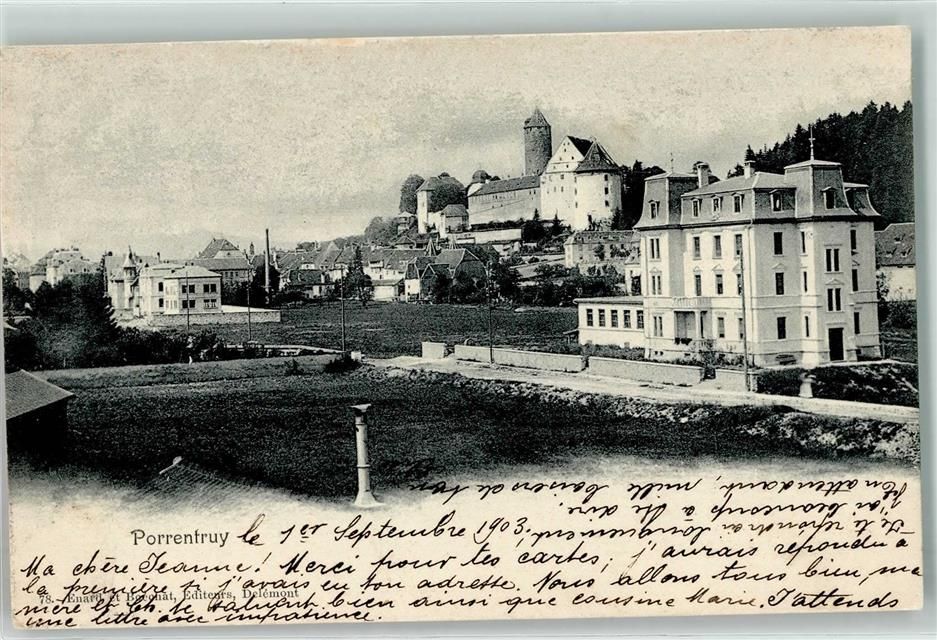 Porrentruy le 1er Septembre 1903.
Ma chère Jeanne! Merci pour tes cartes; j'aurais répondu à
la première si j'avais eu ton adresse. Nous allons tous bien, ma
mère et Ch. te saluent bien ainsi que cousine Marie. J'attends
une lettre avec impatience.
78. Enard et Boéchat, Editeurs, Delémont
Je te répondrai longuement,
j'ai beaucoup à te dire.
En attendant, mille baisers de ton